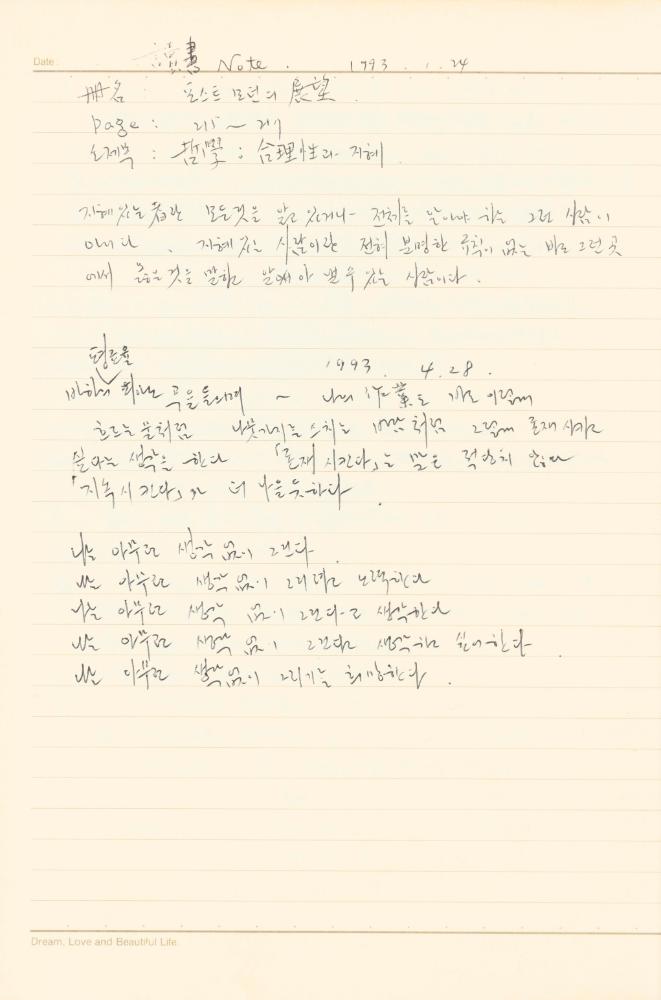 Date.
讀書 Note. 1993. 1. 24
冊名 포스트 모던의 展望.
page : 215 ~ 217
소제목 : 哲學 : 合理性과 지혜.
지혜있는 者란 모든것을 알고 있거나 전체를 알아야 하는 그런 사람이
아니다. 지혜있는 사람이란 전혀 분명한 규칙이 없는 바로 그런 곳
에서 좋은 것을 말하고 있는 사람이다.
평균율
1993. 4. 28.
바하의 곡을 들으며 ~ 나의 作業도 바로 이렇게
흐르는 물처럼 나뭇가지를 스치는 바람처럼 그렇게 존재시키고
싶다는 생각을 한다 「존재시킨다」는 말은 적당치 않다
「지속시킨다」가 더 나을듯하다.
나는 아무런 생각 없이 그린다.
나는 아무런 생각 없이 그리려고 노력한다
나는 아무런 생각 없이 그린다고 생각한다
나는 아무런 생각 없이 그린다고 생각하고 싶어한다.
나는 아무런 생각없이 그리기를 희망한다.
Dream, Love and Beautiful Life.